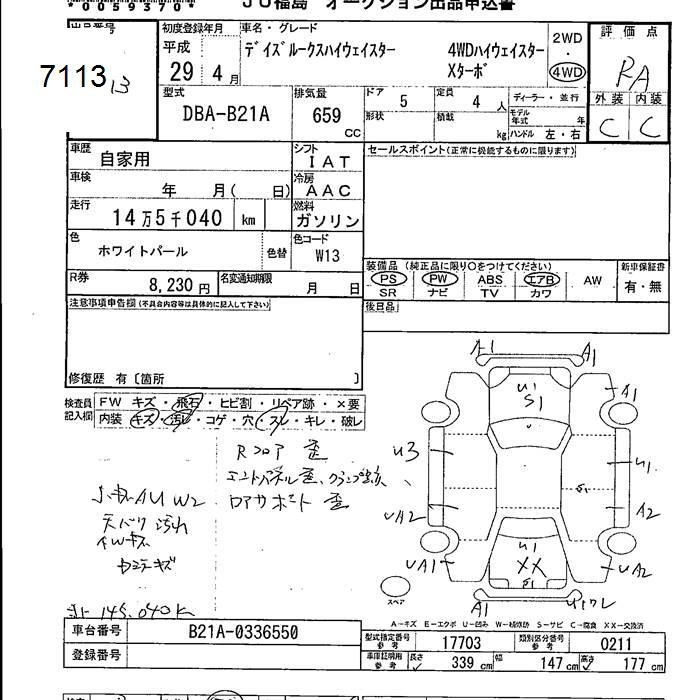 *0059370*
JU福島 オークション出品申込書
出品番号
7113
13
初度登録年月 車名・グレード
平成 29 4 月
デイズルークスハイウェイスター 4WDハイウェイスター
Xターボ
2WD
・
4WD
評価点
RA
外装 内装
C C
型式
DBA-B21A
排気量
659 CC
ドア 5
定員 4 人
ディーラー・並行
形状 積載 kg
モデル年式 年
ハンドル 左・右
車歴 自家用
シフト IAT
セールスポイント(正常に機能するものに限ります)
車検 年 月( 日)
冷房 AAC
走行 14万5千040 km
燃料 ガソリン
色 ホワイトパール 色替
色コード W13
装備品 (純正品に限り○をつけてください)
PS PW ABS エアB AW
SR ナビ TV カワ
新車保証書
有・無
R券 8,230円
名変通知期限 月 日
後日品
注意事項申告欄(不具合内容等は具体的に記入して下さい)
修復歴 有〔箇所 〕
検査員記入欄
FW キズ・飛石・ヒビ割・リペア跡・×要
内装 キズ・汚レ・コゲ・穴・スレ・キレ・破レ
Rフロア 歪
ロアサポート 歪
天バリ汚れ
145,040K
A1 A1
U1
S1
A1
U3
U1
UA2
S1
A2
UA1
U1
XX
S1
UA2
A1
スペア
A-キズ E-エクボ U-凹み W-補修跡 S-サビ C-腐食 XX-交換済
車台番号 B21A-0336550
登録番号
型式指定番号 参考 17703
類別区分番号 参考 0211
車庫証明用 参考 長さ 339cm 幅 147cm 高さ 177cm